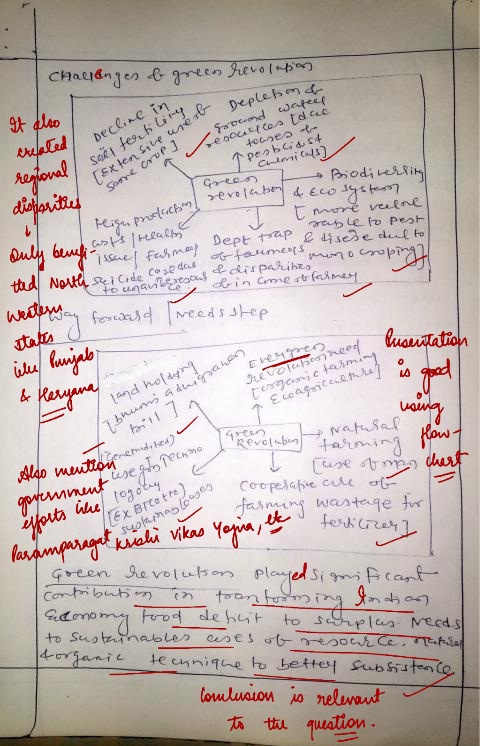 Challenges of green revolution
Decline in
soil fertility
[Extensive use of
same crop]
Depletion of
ground water
resources [due
to uses of
pesticides &
chemicals]
Green
revolution
Biodiversity
& Eco system
[more valne
rable to pest
& disese due to
mono croping]
High production
costs / Health
issue / farmer
suicide case due
Dept trap
of farmers
& disparities
of in come of farmer
It also
created
regional
disparities
↓
Only benefi-
tted North
western
states
like Punjab
& Haryana
way forward | Needs step
land holding
[bhumi adhigrahan
bill]
Evergreen
revolution need
[organic farming
Ecoagriculture]
Green
Revolution
Natural
farming
[use of
(Genemidified)
use gm Techno
logy
[EX BT cotto]
sustainable uses
cooperative
farming wastage for
fertilizer]
Presentation
is good
using
flow-
chart
Also mention
government
efforts like
Paramparagat Krishi Vikas Yojna, etc
Green revolution played significant
contribution in transforming Indian
Economy food deficit to surplus. Needs
to sustainables uses of resource. natural
& organic technique to better subsistence
Conclusion is relevant
to the question.